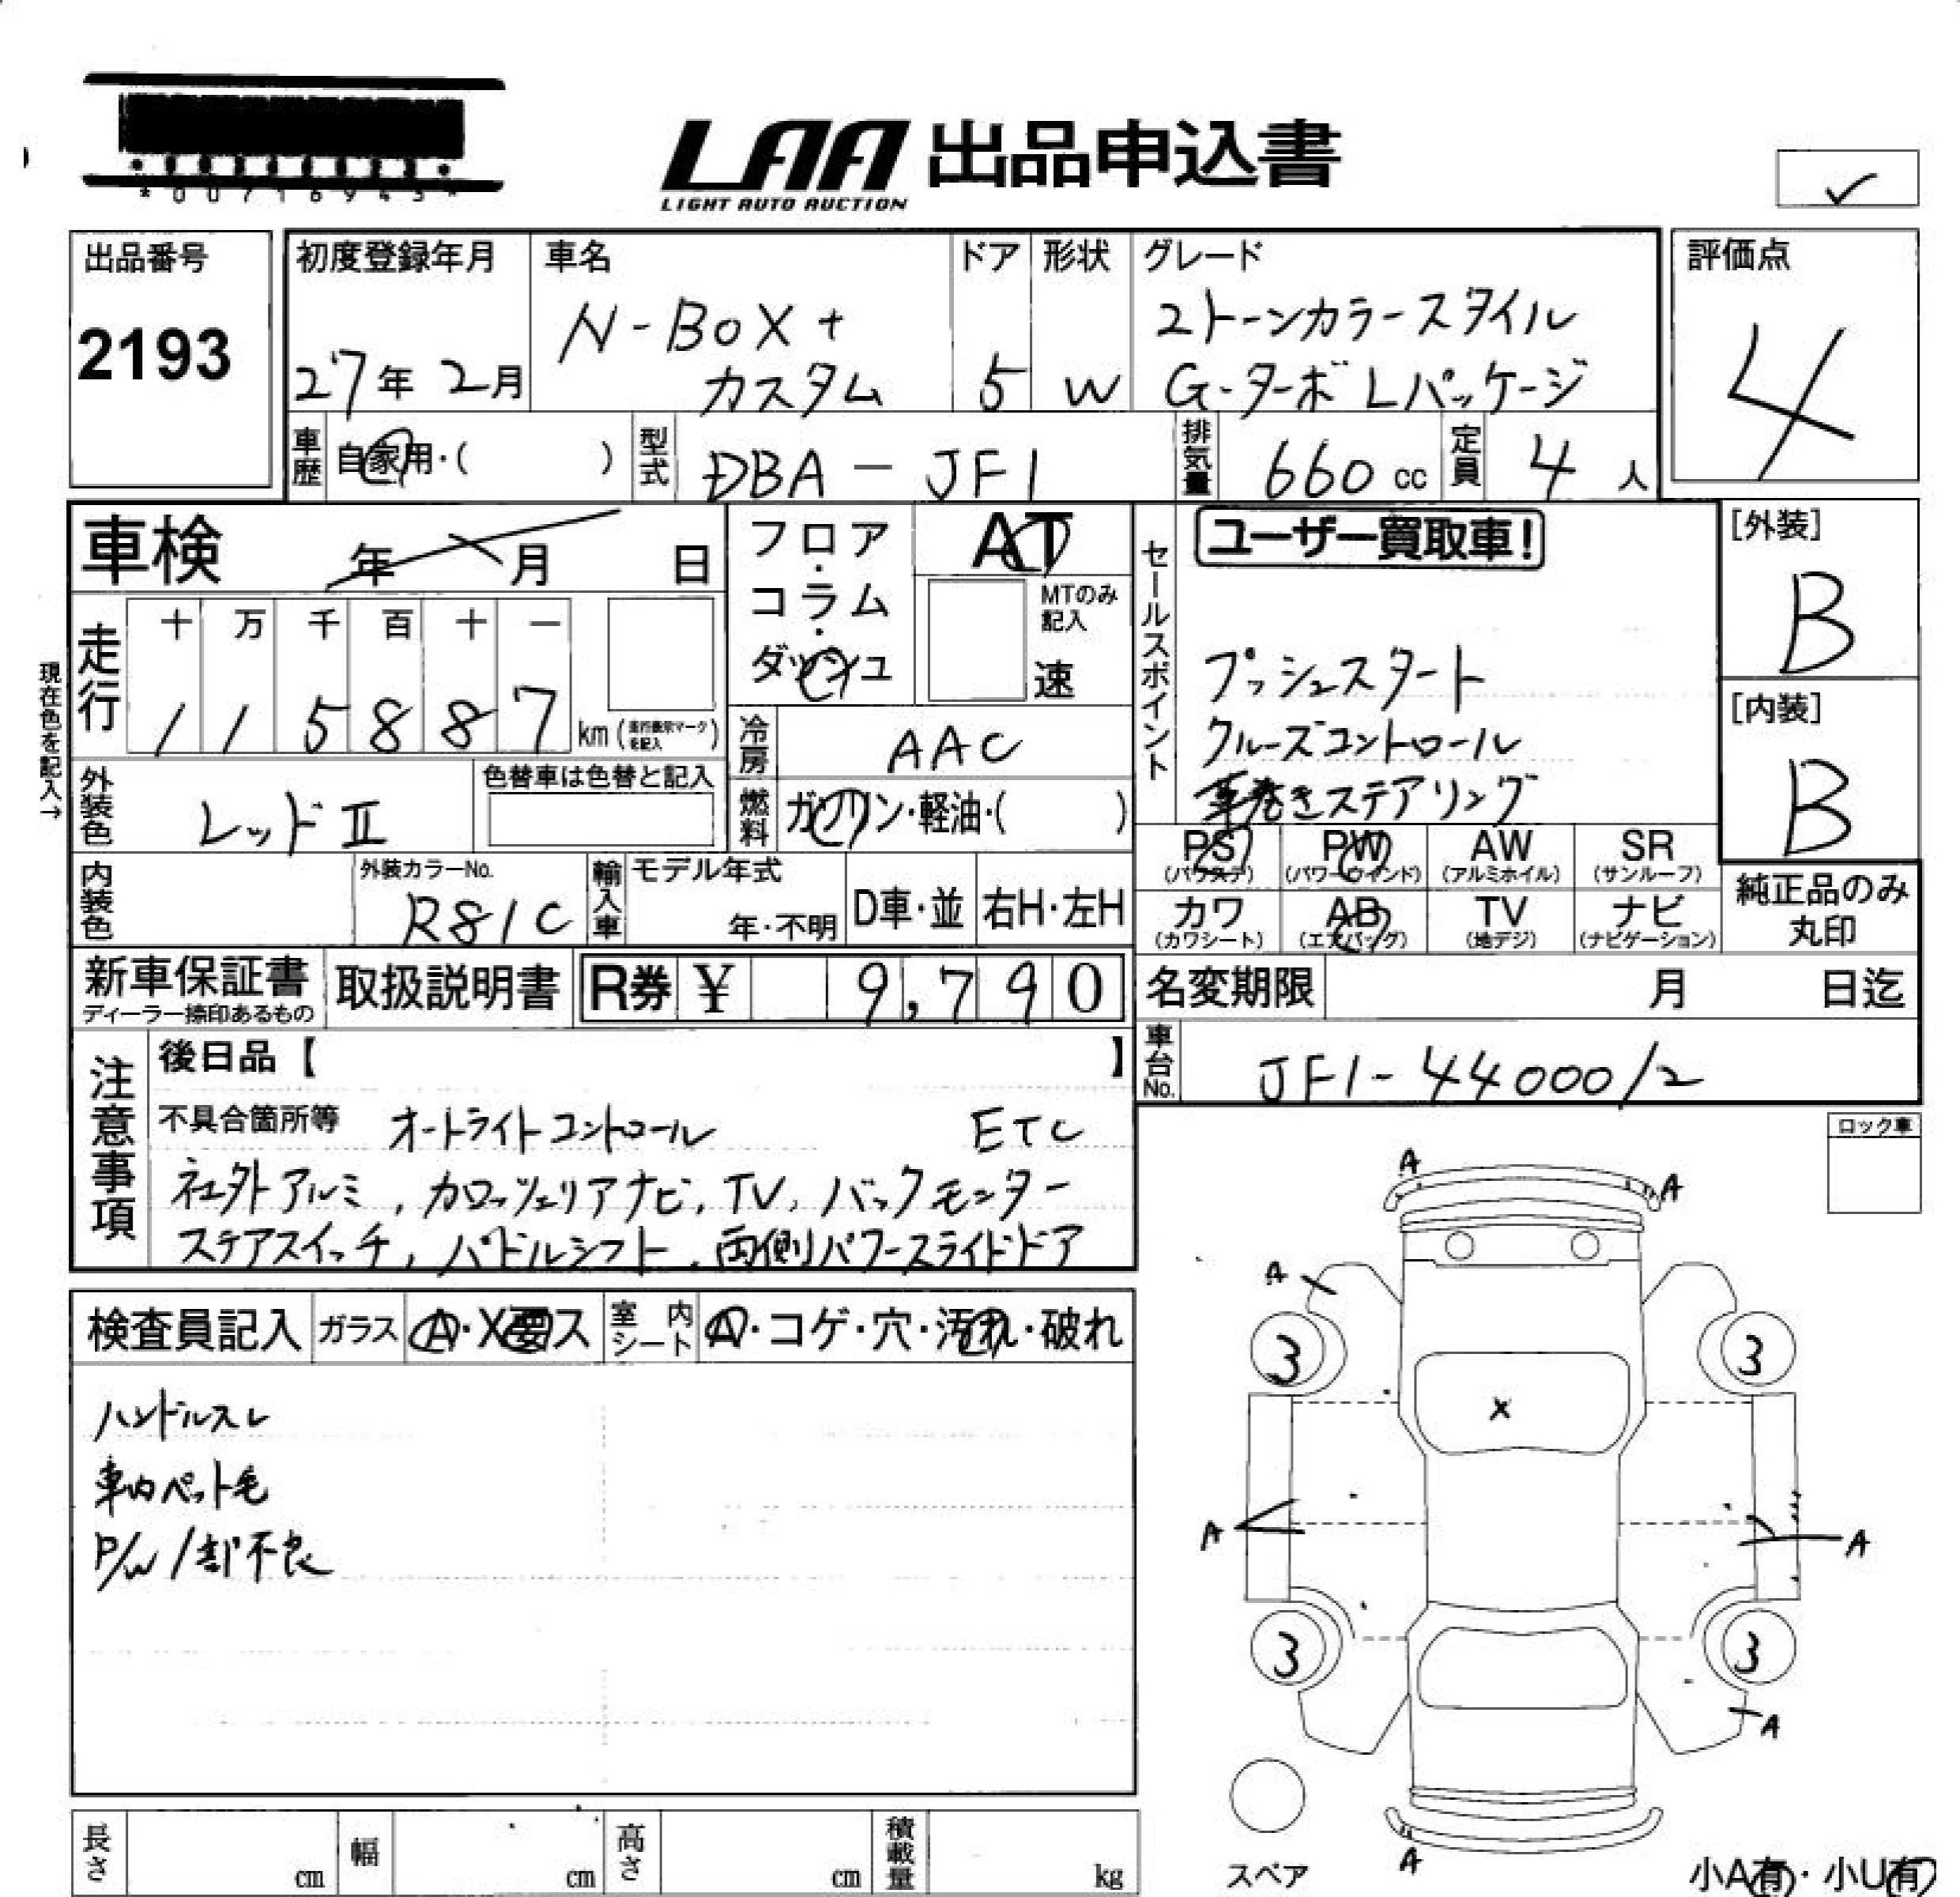 *00716945*
LAA 出品申込書
LIGHT AUTO AUCTION
✓
出品番号
2193
初度登録年月
27年 2月
車名
N-BOX+
カスタム
ドア
5
形状
W
グレード
2トーンカラースタイル
G・ターボ Lパッケージ
評価点
4
車歴
自家用・( )
型式
DBA - JF1
排気量
660 cc
定員
4 人
車検 年 月 日
フロア・コラム・ダッシュ
AT
MTのみ記入
速
セールスポイント
ユーザー買取車!
プッシュスタート
クルーズコントロール
革巻きステアリング
[外装]
B
[内装]
B
現在色を記入→
走行
十 万 千 百 十 一
1 1 5 8 8 7 km
冷房
AAC
外装色
レッドⅡ
色替車は色替と記入
燃料
ガソリン・軽油・( )
PS (パワステ)
PW (パワーウィンド)
AW (アルミホイル)
SR (サンルーフ)
内装色
外装カラーNo.
R81C
輸入車
モデル年式
年・不明
D車・並
右H・左H
カワ (カワシート)
AB (エアバッグ)
TV (地デジ)
ナビ (ナビゲーション)
純正品のみ
丸印
新車保証書
ディーラー捺印あるもの
取扱説明書
R券 ¥ 9,790
名変期限 月 日迄
車台No.
JF1-4400012
注意事項
後日品【 】
不具合箇所等 オートライトコントロール ETC
社外アルミ, カロッツェリアナビ, TV, バックモニター
ステアスイッチ, パドルシフト, 両側パワースライドドア
ロック車
検査員記入
ガラス
A・X要ス
室内シート
A・コゲ・穴・汚れ・破れ
ハンドルスレ
車内ペット毛
P/W 1部不良
A
A
A
3
3
X
A
A
3
3
A
A
スペア
小A有・小U有
長さ cm
幅 cm
高さ cm
積載量 kg